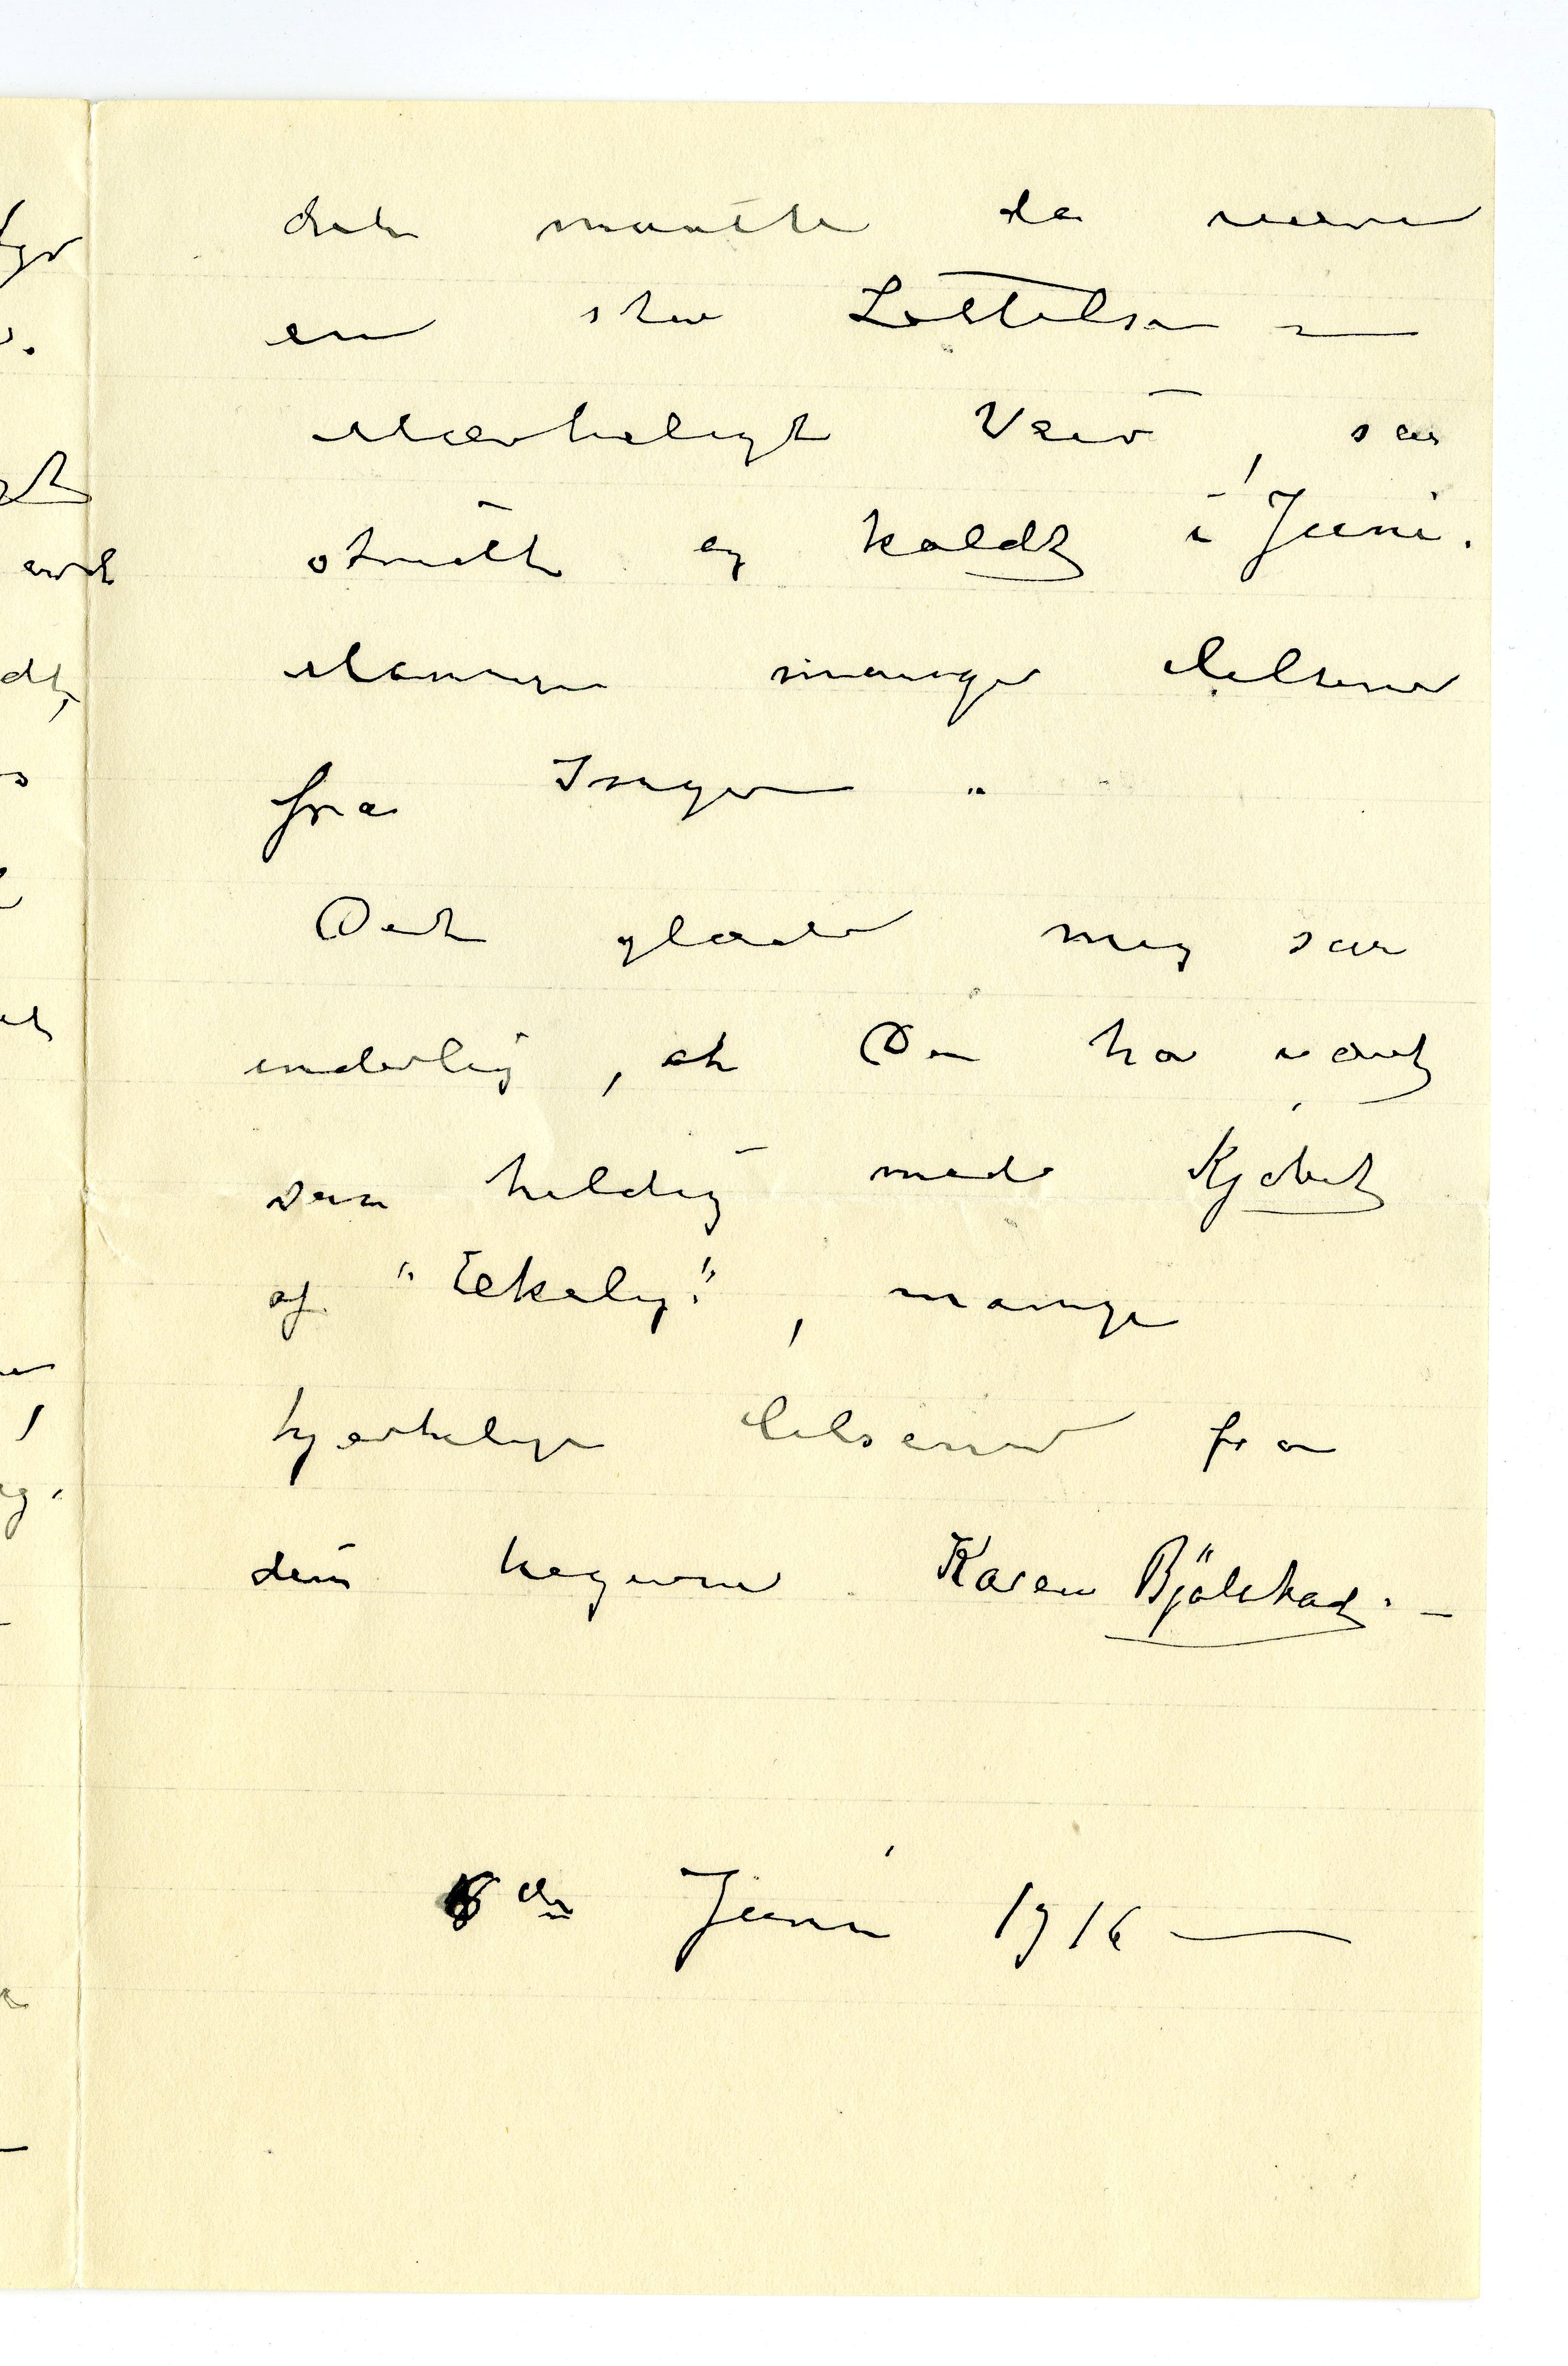 det maatte da være
en stor Lettelse —
Mærkeligt Veir, saa
stridt og koldt i Juni.
mange Hilsener
fra Inger "
Det glæder mig saa
inderlig, at Du har været
saa heldig med Kjøbet
af "Ekely", mange
hjertelige Hilsener fra
din hengivne Karen Bjölstad. —
6te Juni 1916 —